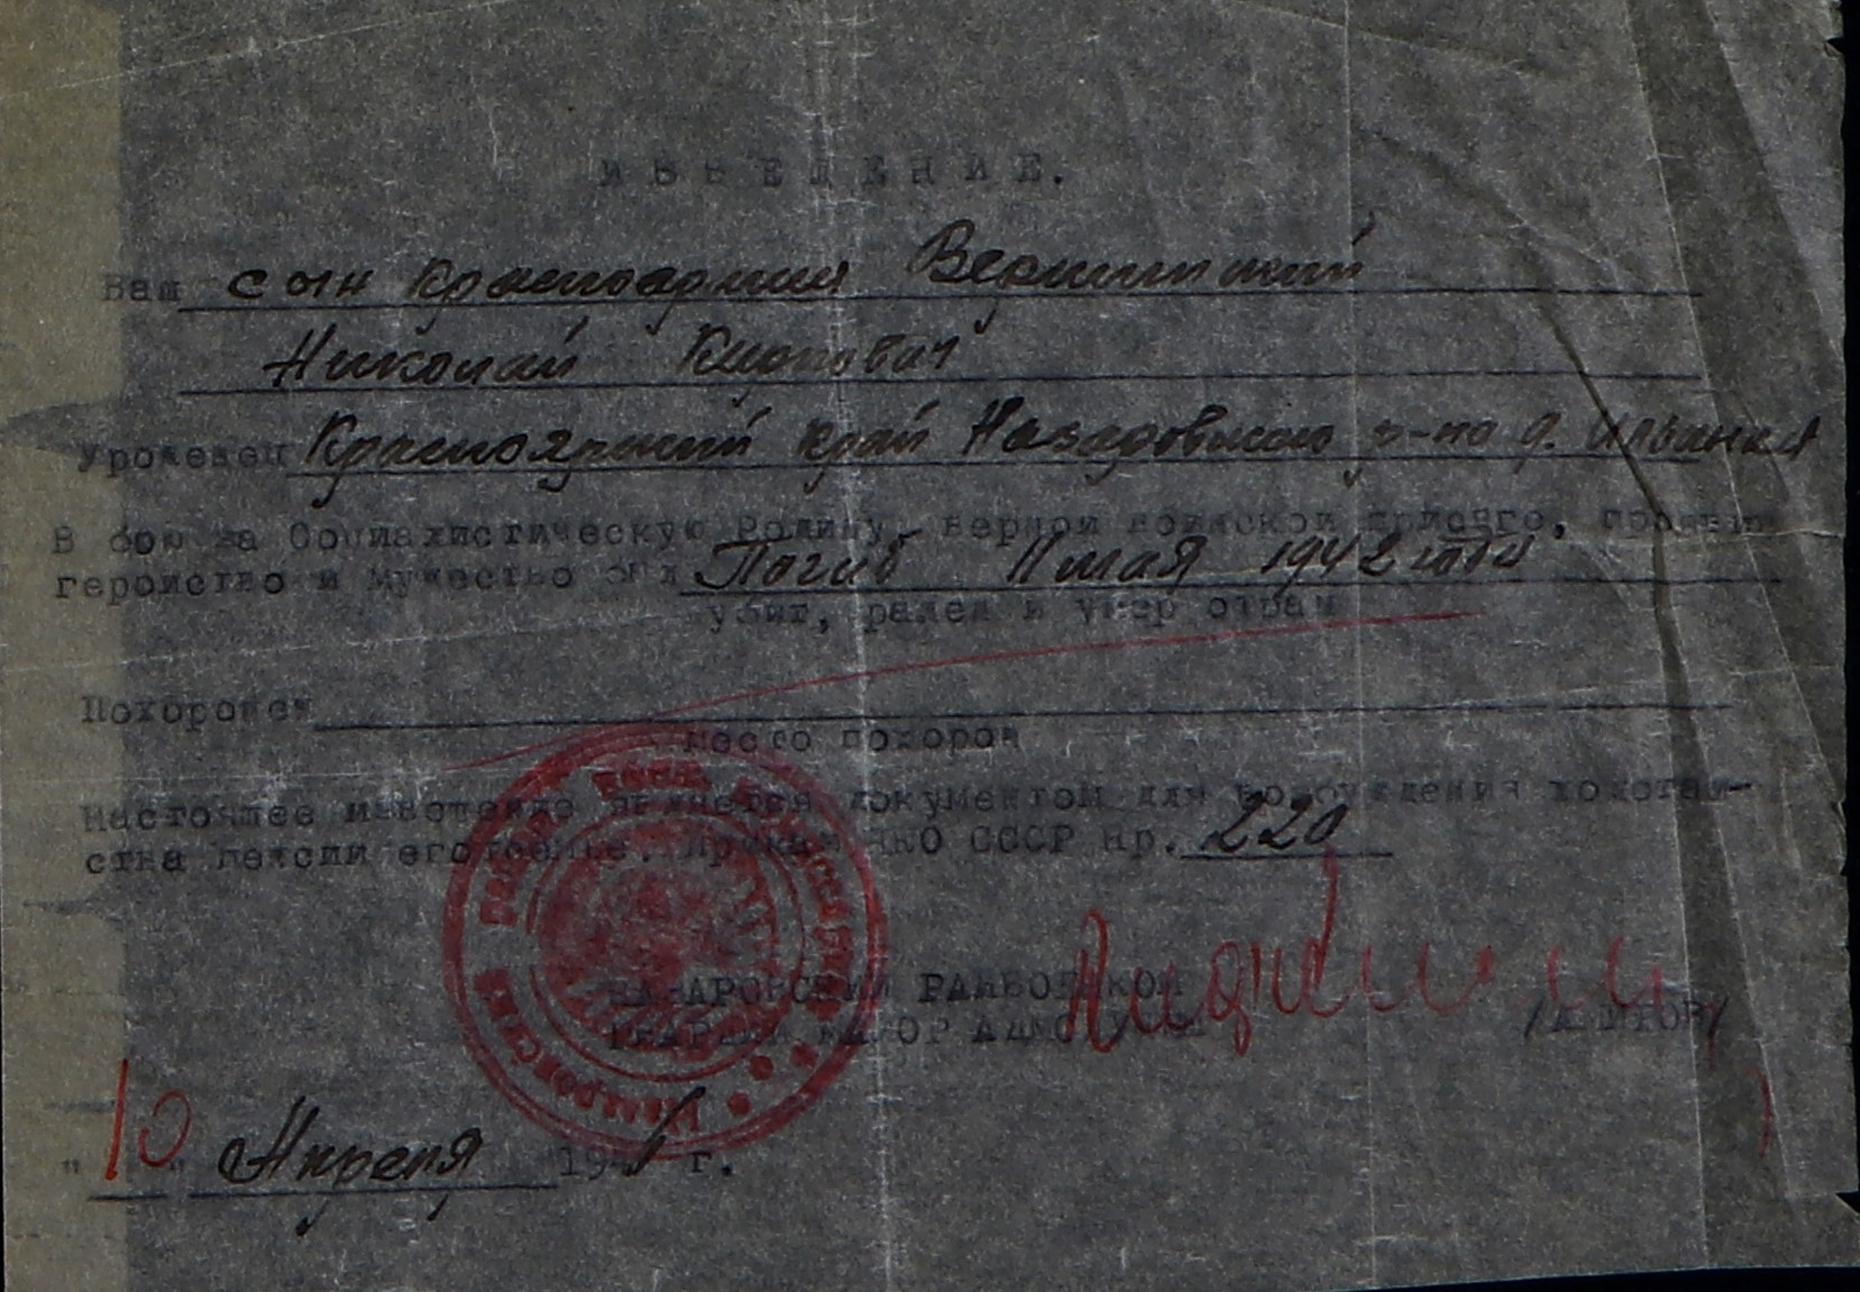 ИЗВЕЩЕНИЕ.
Ваш сын красноармеец Вершинский
Николай Карпович
Уроженец Красноярский край Назаровского р-на д. Ильинка
В бою за Социалистическую Родину, верный воинской присяге, проявив
геройство и мужество был Погиб мая 1942 года
убит, ранен и умер от ран
Похоронен
место похорон
Настоящее извещение является документом для возбуждения ходатай-
ства пенсии его семье. Приказ НКО СССР нр. 220
НАЗАРОВСКИЙ РАЙВОЕНКОМ
ГВАРДИИ МАЙОР АДМ
"10" Апреля 19 г.